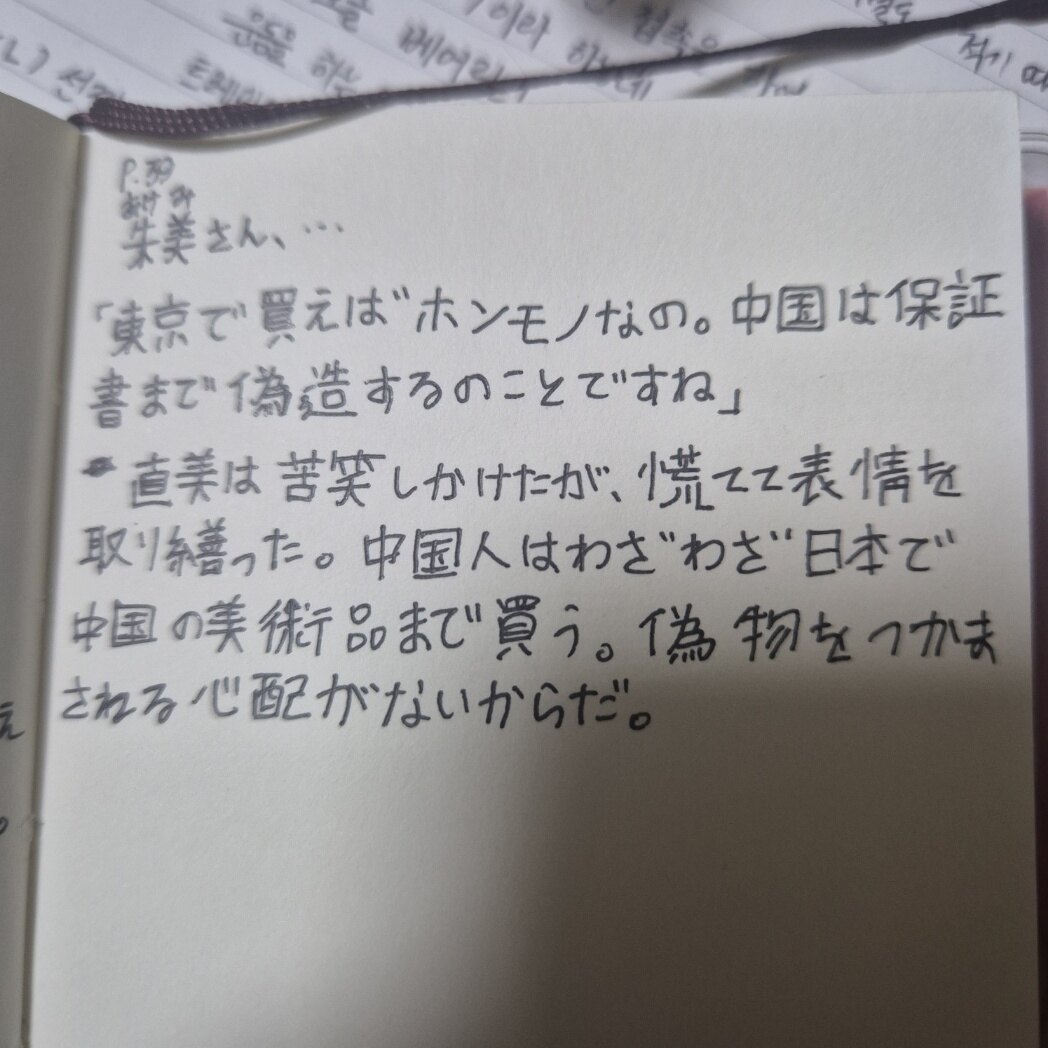 적기 때
P.39
あけみ
朱美さん、…
「東京で買えばホンモノなの。中国は保証
書まで偽造するのことですね」
直美は苦笑しかけたが、慌てて表情を
取り繕った。中国人はわざわざ日本で
中国の美術品まで買う。偽物をつかま
される心配がないからだ。
え
。